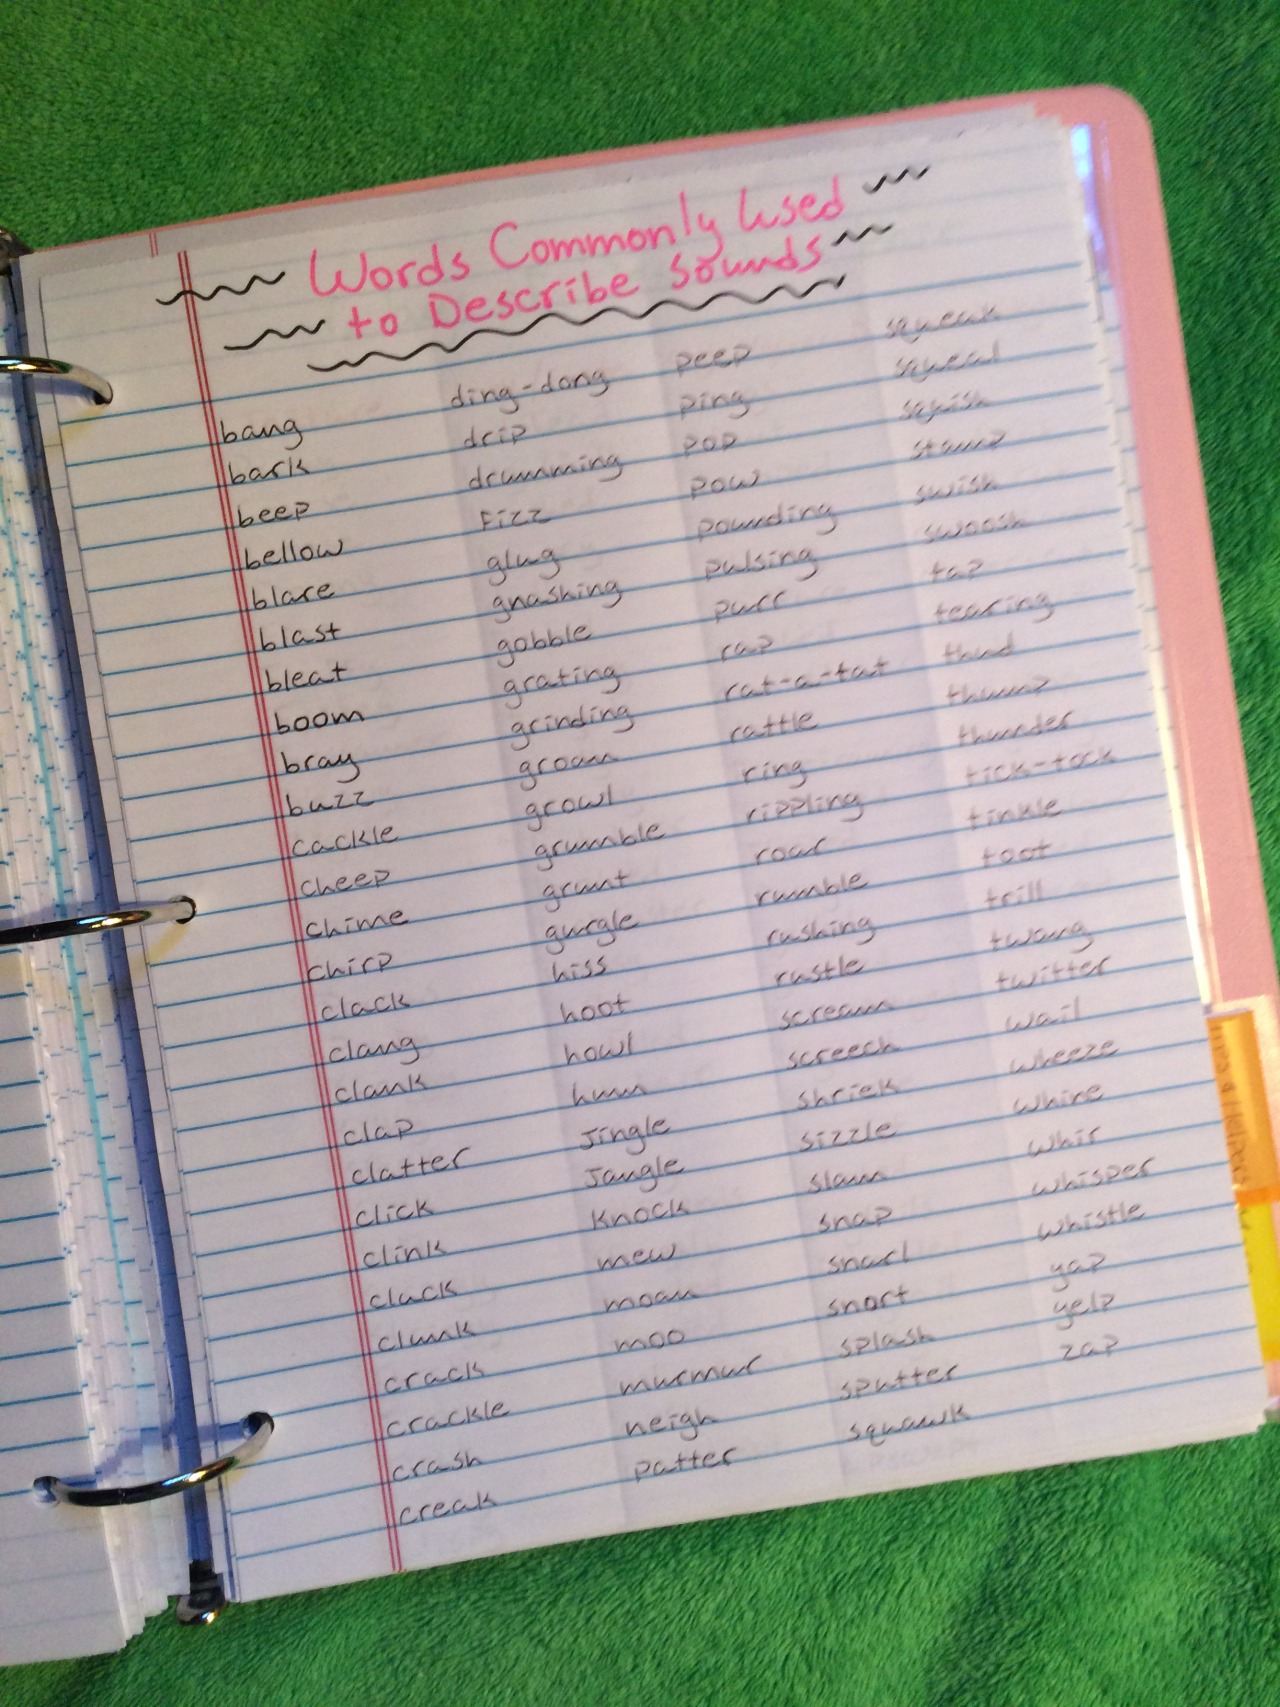 Words Commonly Used
to Describe Sounds
bang
bark
beep
bellow
blare
blast
bleat
boom
bray
buzz
cackle
cheep
chime
chirp
clack
clang
clank
clap
clatter
click
clink
cluck
clunk
crack
crackle
crash
creak
ding-dong
drip
drumming
Fizz
glug
gnashing
gobble
grating
grinding
groan
growl
grumble
grunt
gurgle
hiss
hoot
howl
hum
Jingle
Jangle
Knock
mew
moan
moo
murmur
neigh
patter
peep
ping
pop
pow
pounding
pulsing
purr
rap
rat-a-tat
rattle
ring
rippling
roar
rumble
rushing
rustle
scream
screech
shriek
sizzle
slam
snap
snarl
snort
splash
sputter
squawk
squeak
squeal
squish
stamp
swish
swoosh
tap
tearing
thud
thump
thunder
tick-tock
tinkle
toot
trill
twang
twitter
wail
wheeze
whine
whir
whisper
whistle
yap
yelp
zap